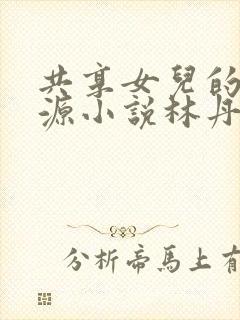 共享女兒的
源小說林丹
分析帝馬上有